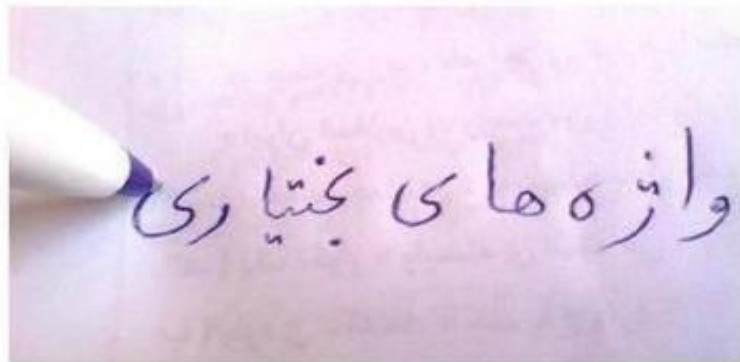 واژه های بختیاری